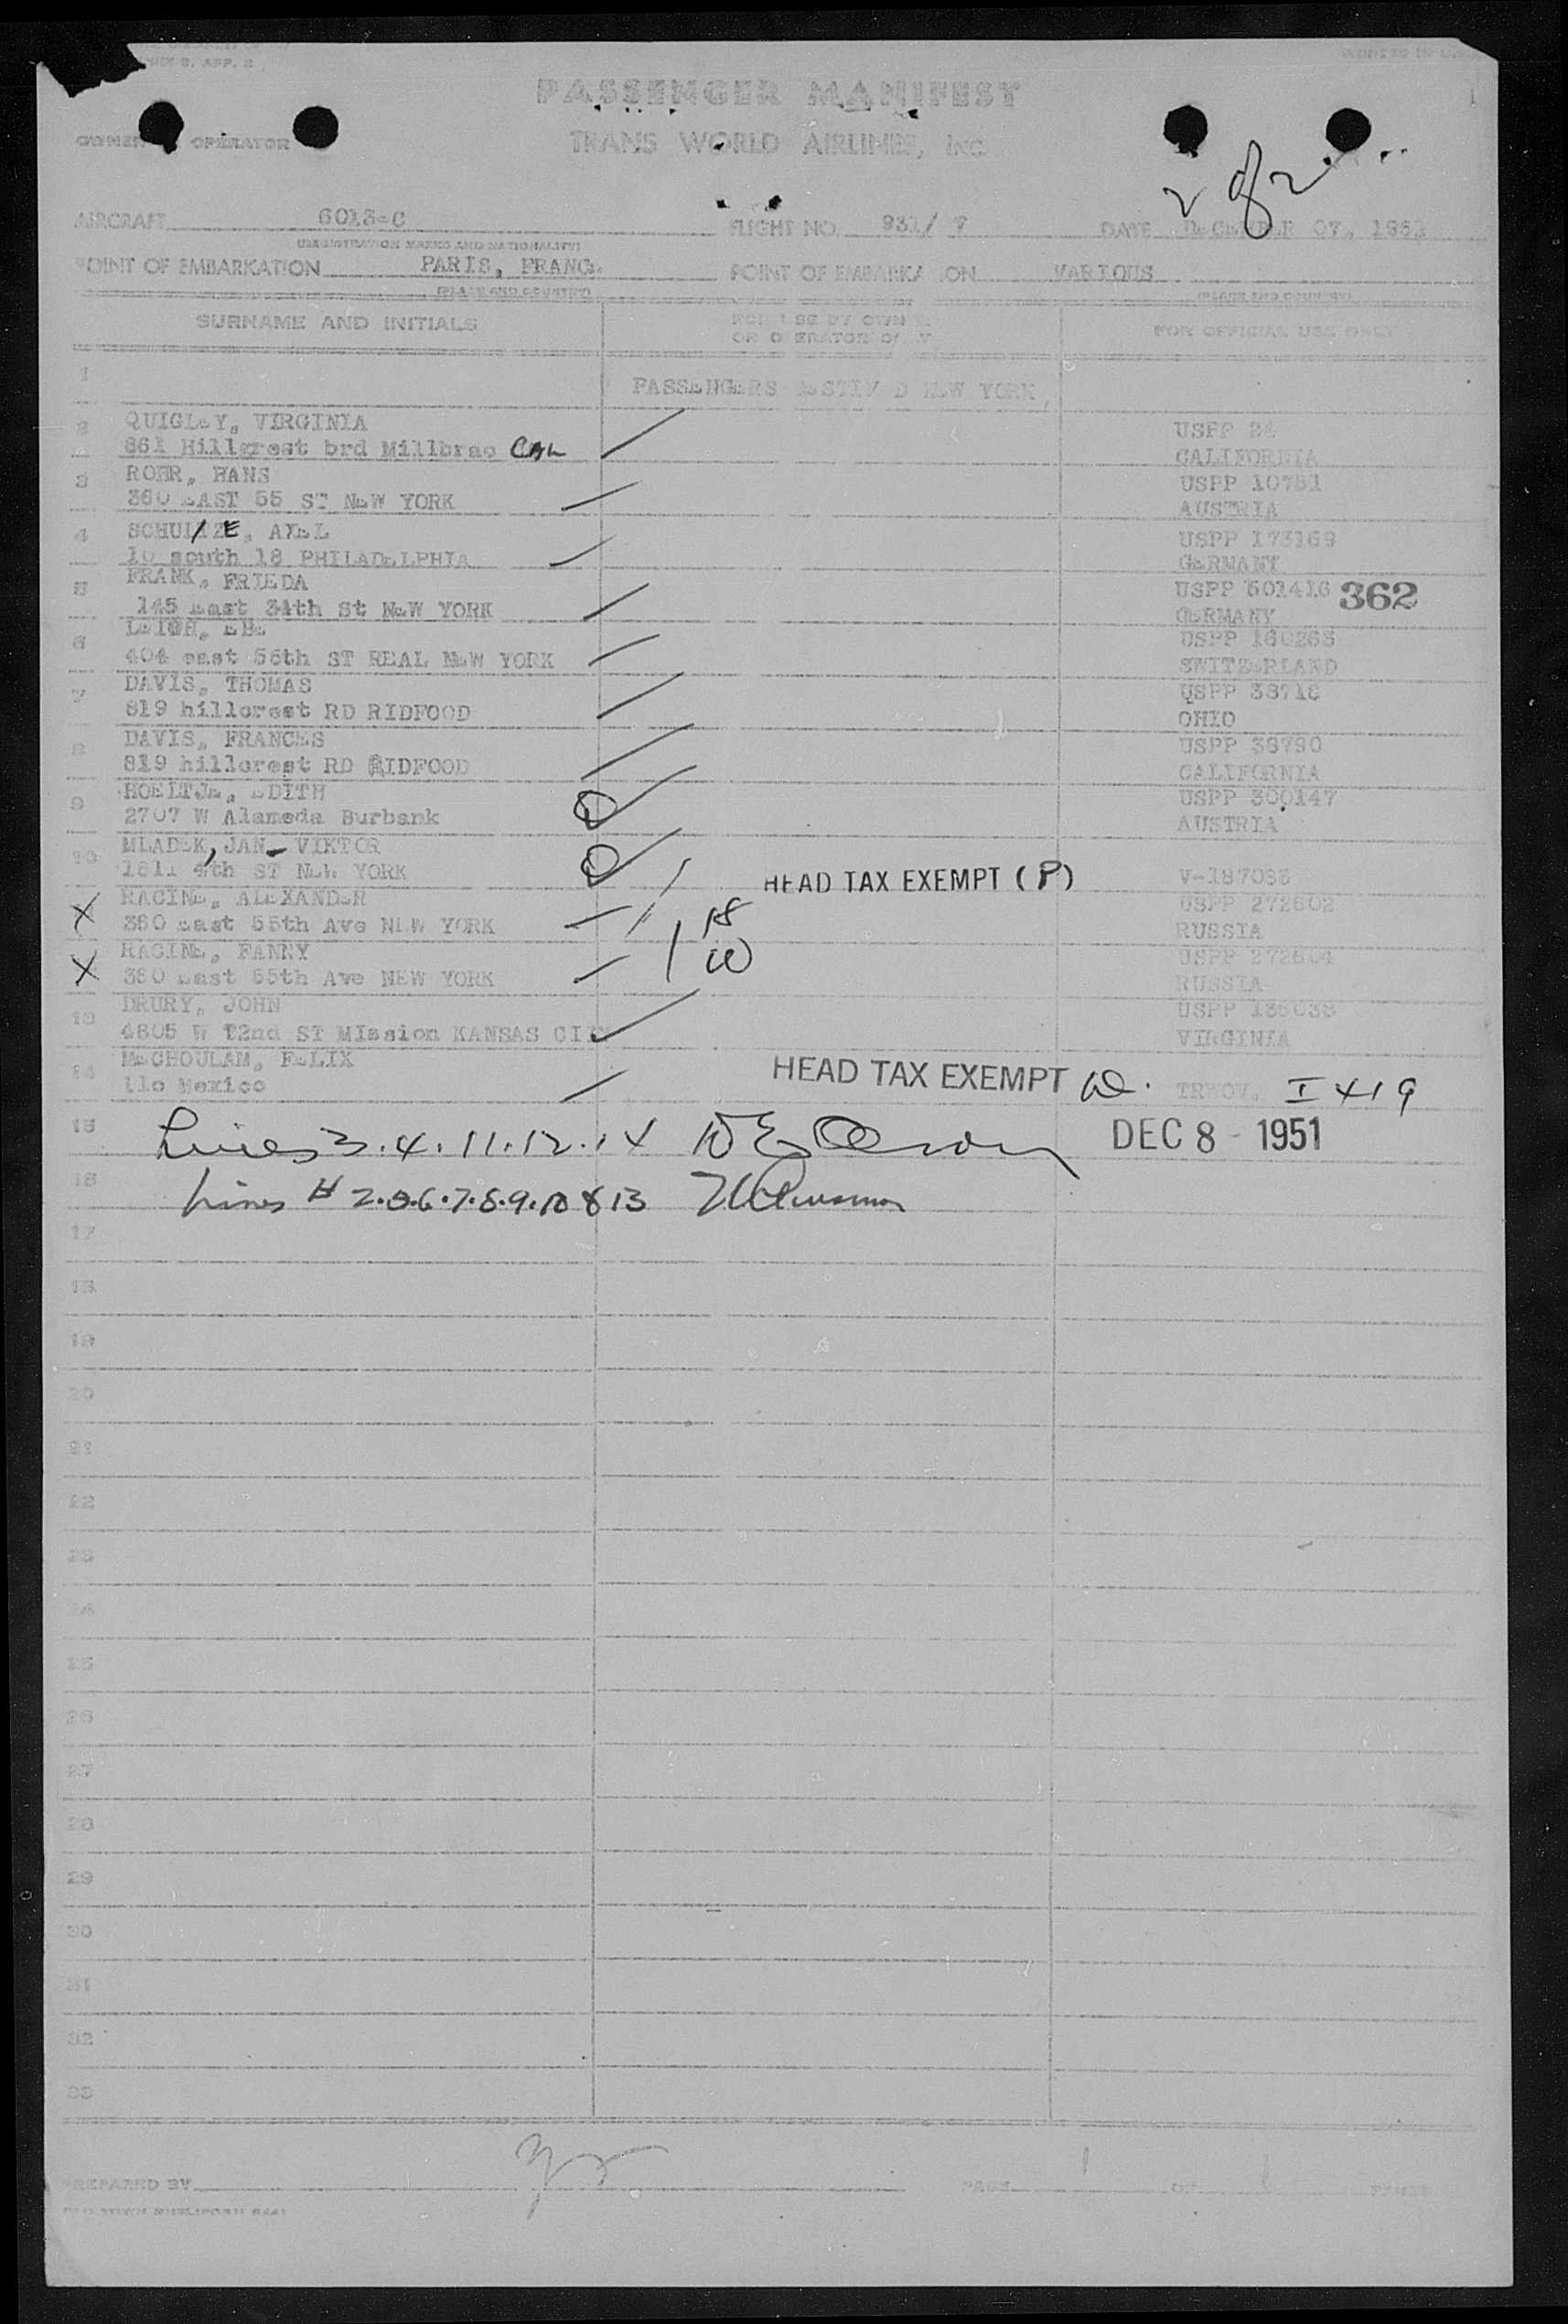 PASSENGER MANIFEST
OPERATOR
TRANS WORLD AIRLINES, INC
2 of 2
AIRCRAFT 6013-C FLIGHT NO. 931/ 7 DATE DECEMBER 07, 1951
(REGISTRATION MARKS AND NATIONALITY)
POINT OF EMBARKATION PARIS, FRANC. POINT OF EMBARKA ION VARIOUS
(PLACE AND COUNTRY) (PLACE AND COUNTRY)
SURNAME AND INITIALS FOR USE BY OWN OR OPERATOR ONLY FOR OFFICIAL USE ONLY
1 PASSENGERS DESTIN D NEW YORK
2 QUIGLEY, VIRGINIA USPP 24
861 Hillcrest brd Millbrae CAL CALIFORNIA
3 ROHR, HANS USPP 10751
360 EAST 55 ST NEW YORK AUSTRIA
4 SCHULZE, AXEL USPP 173169
10 south 18 PHILADELPHIA GERMANY
5 FRANK, FRIEDA USPP 501416 362
145 East 34th St NEW YORK GERMANY
6 LEIGH, EBE USPP 160265
404 east 55th ST REAL NEW YORK SWITZERLAND
7 DAVIS, THOMAS USPP 38716
819 hillcrest RD RIDFOOD OHIO
8 DAVIS, FRANCES USPP 38790
819 hillcrest RD RIDFOOD CALIFORNIA
9 HOELTJE, EDITH USPP 300147
2707 W Alameda Burbank AUSTRIA
10 MLADEK, JAN - VIKTOR
1811 4th ST NEW YORK HEAD TAX EXEMPT (P) V-187035
X RACINE, ALEXANDER USPP 272602
360 East 55th Ave NEW YORK RUSSIA
X RACINE, FANNY USPP 272604
360 East 55th Ave NEW YORK RUSSIA
13 DRURY, JOHN USPP 135035
4805 W 72nd ST MIssion KANSAS CIT VIRGINIA
14 MECHOULAM, FELIX
llo Mexico HEAD TAX EXEMPT W. TRWOV. I 419
15 Lines 3.4.11.12.14 DEC 8 - 1951
16 Lines # 2.5.6.7.8.9.10 & 13
17
18
19
20
21
22
23
24
25
26
27
28
29
30
31
32
33
PREPARED BY PAGE 1 OF 1 PAGES